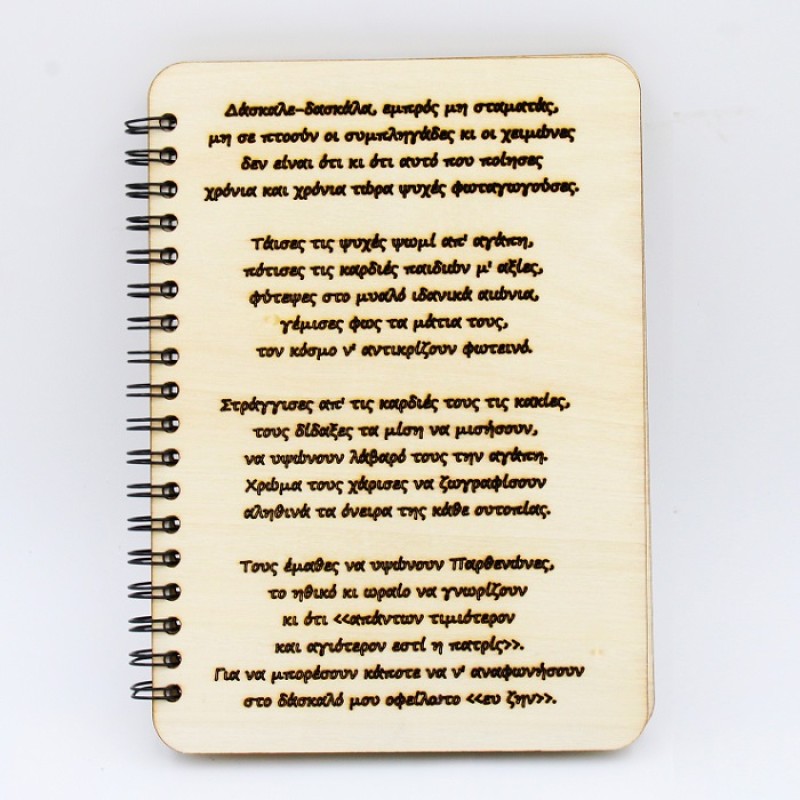 Δάσκαλε-δασκάλα, εμπρός μη σταματάς,
μη σε πτοούν οι συμπληγάδες κι οι χειμώνες
δεν είναι ότι κι ότι αυτό που ποίησες
χρόνια και χρόνια τώρα ψυχές φωταγωγούσες.
Τάισες τις ψυχές ψωμί απ' αγάπη,
πότισες τις καρδιές παιδιών μ' αξίες,
φύτεψες στο μυαλό ιδανικά αιώνια,
γέμισες φως τα μάτια τους,
τον κόσμο ν' αντικρίζουν φωτεινό.
Στράγγισες απ' τις καρδιές τους τις κακίες,
τους δίδαξες τα μίση να μισήσουν,
να υψώνουν λάβαρό τους την αγάπη.
Χρώμα τους χάρισες να ζωγραφίσουν
αληθινά τα όνειρα της κάθε ουτοπίας.
Τους έμαθες να υψώνουν Παρθενώνες,
το ηθικό κι ωραίο να γνωρίζουν
κι ότι <<απάντων τιμιότερον
και αγιότερον εστί η πατρίς>>.
Για να μπορέσουν κάποτε να ν' αναφωνήσουν
στο δάσκαλό μου οφείλω το <<ευ ζην>>.